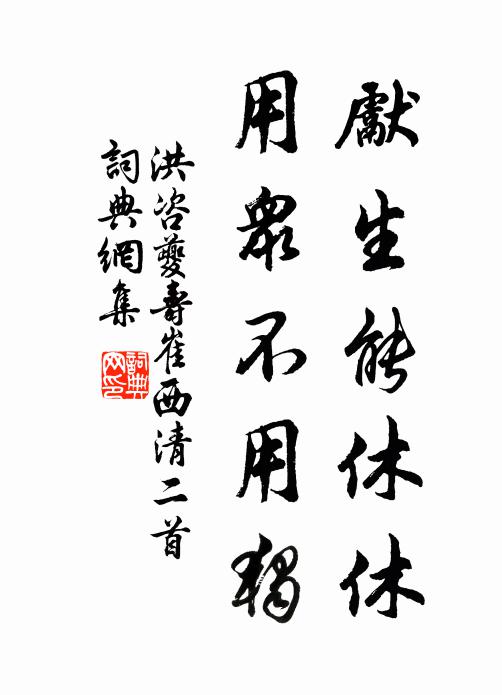 獻生能休休
用衆不用獨
洪咨夔壽崔西清二首
詞典網集
詞典
网印